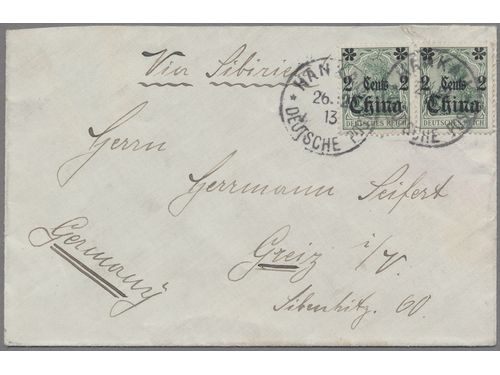 Via Sibirien
2 Cents 2
China
DEUTSCHES REICH
2 Cents 2
China
DEUTSCHES REICH
HAN
26.
13
DEUTSCHE
Herrn
Herrmann Seifert
Greiz i/V.
Germany
60